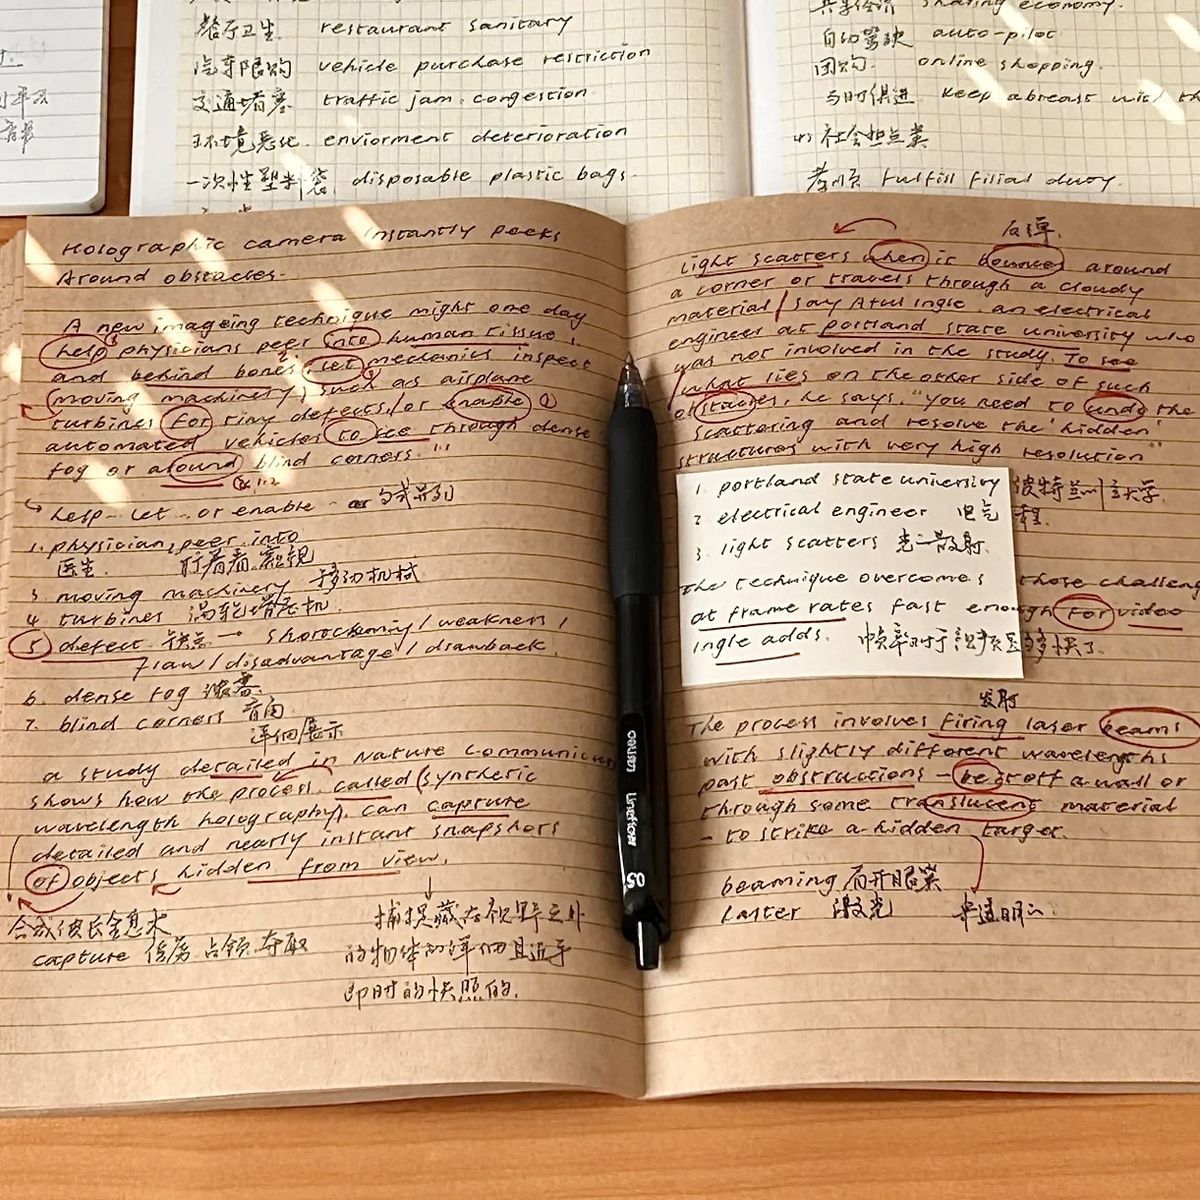 餐厅卫生 restaurant sanitary
汽车限购 vehicle purchase restriction
交通堵塞 traffic jam congestion
环境恶化 enviorment deterioration
一次性塑料袋 disposable plastic bags.
共享经济 sharing economy.
自动驾驶 auto-piloc
团购 online shopping.
与时俱进 keep abreast with th
孝顺 fulfill filial duty.
Holographic camera instantly peeks
Around obstacles.
A new imageing technique might one day
help physicians peer into human tissue,
and behind bones, let mechanics inspect
moving machinery, such as airplane
turbines for tiny defects, or enable
automated vehicles to see through dense
fog or around blind corners.
help let or enable
1. physician peer into
医生.
3. moving machinery 移动机械
4 turbines 涡轮增压机
5 defect 缺点 → /weakness/
flaw/disadvantage/
6. dense fog 浓雾
7. blind corners 盲角
详细展示
a study detailed in Nature Communicat
shows how the process, called (synthetic
wavelength holography), can capture
detailed and nearly instant snapshots
of objects hidden from view.
合成波长全息术
capture 俘虏 占领 夺取
捕捉藏在视野之外
的物体的详细且近乎
即时的快照的.
反弹.
light scatters when it bounces around
a corner or travels through a cloudy
material, say Atul Ingle, an electrical
engineer at portland state university who
was not involved in the study. To see
what lies on the other side of such
obstacles, he says, "you need to undo the
scattering and resolve the 'hidden'
structures with very high resolution"
1. portland state university 波特兰州立大学
2 electrical engineer 电气 程.
3. light scatters 光散射.
The technique overcomes those challeng
at frame rates fast enough for video
ingle adds. 帧率对于 够快了.
发射
The process involves firing laser beams
with slightly different wavelengths
past obstructions – be it off a wall or
through some translucent material
– to strike a hidden target.
beaming
laster 激光
半透明的
deli
0.5